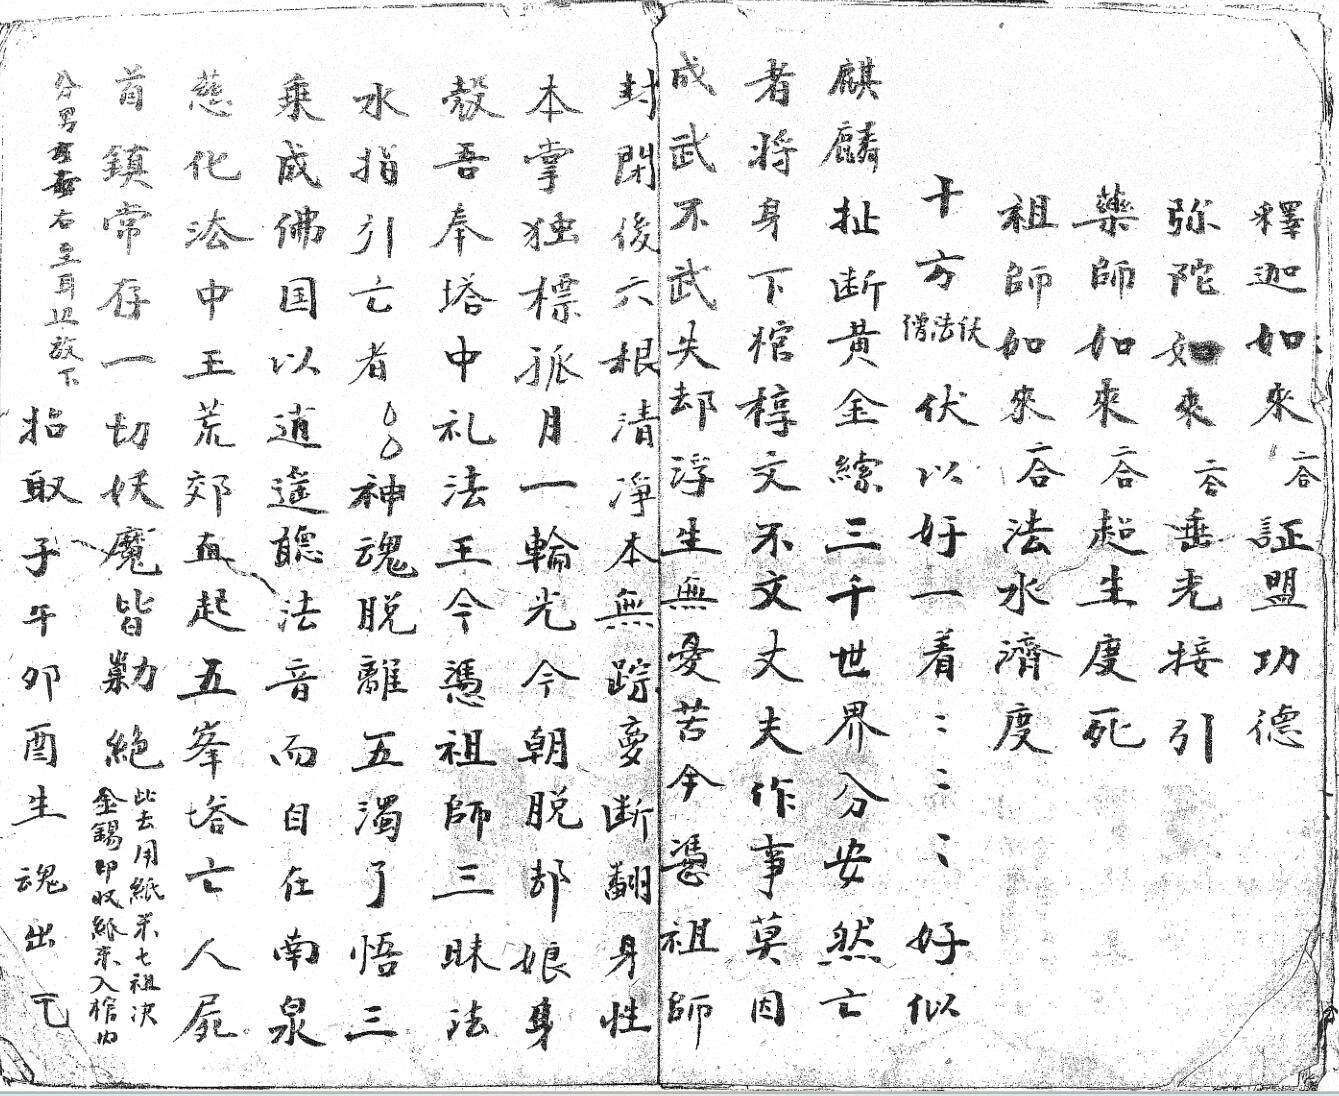 釋迦如來 二合 証盟功德
弥陀如來 二合 垂光接引
藥師如來 二合 超生度死
祖師如來 二合 法水濟度
十方 佛法僧 伏以好一着：：：好似
麒麟扯断黄金縤三千世界分安然亡
者将身下棺椁文不文丈夫作事莫因
成武不武失却浮生無憂苦今憑祖師
封閉後六根清淨本無踪夢断翻身性
本掌独標孤月一輪光今朝脱却娘身
殼吾奉塔中礼法王今憑祖師三昧法
水指引亡者〇〇神魂脱離五濁了悟三
乗成佛国以逍遥聽法音而自在南泉
慈化法中王荒郊血起五峯塔亡人屍
首鎮常存一切妖魔皆勦絶 此去用紙来七祖决
金錫印收紙束入棺内
分男左女右至耳边放下
抬取子午卯酉生魂出 乇